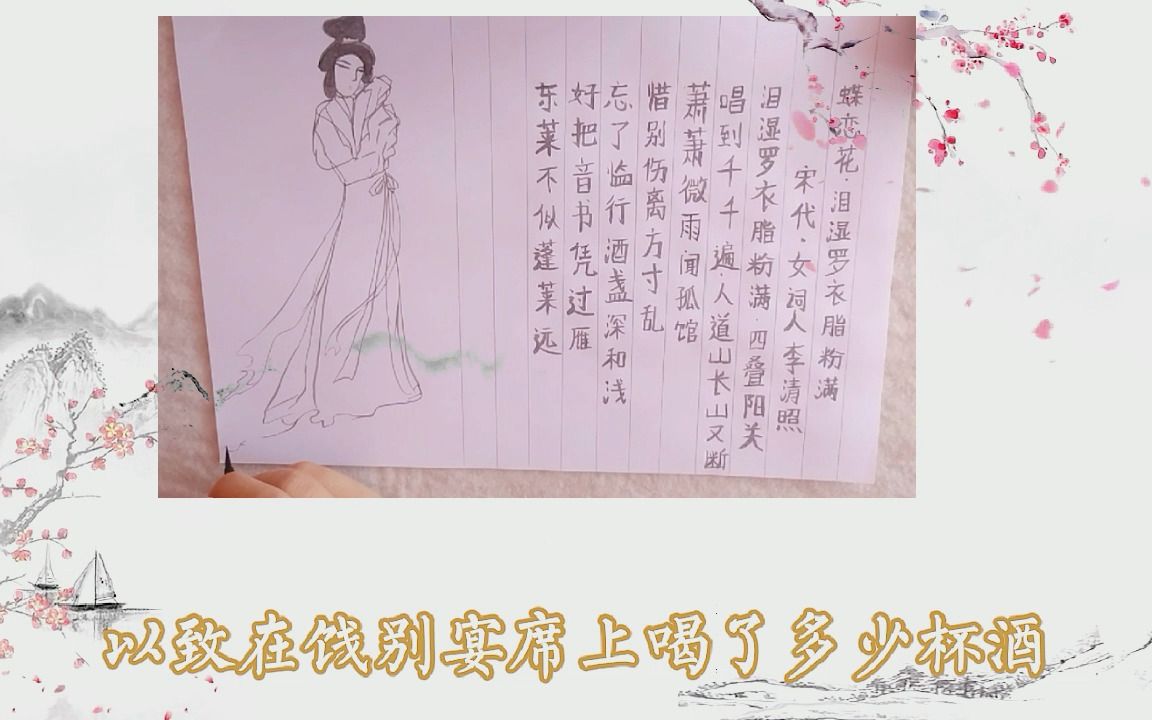 蝶恋花·泪湿罗衣脂粉满
宋代·女词人李清照
泪湿罗衣脂粉满·四叠阳关
唱到千千遍·人道山长山又断
萧萧微雨闻孤馆
惜别伤离方寸乱
忘了临行酒盏深和浅
好把音书凭过雁
东莱不似蓬莱远
以致在饯别宴席上喝了多少杯酒